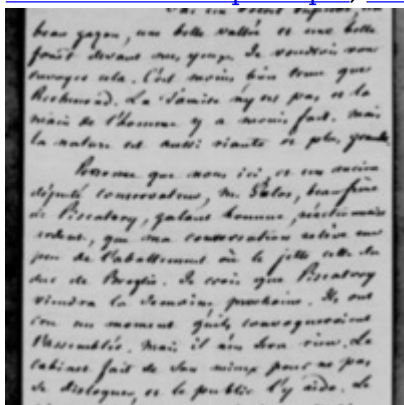 J'ai un
beau gazon, une belle vallée et une belle
forêt devant mes yeux. Je voudrois vous
envoyer cela. C'est moins bien tenu que
Richmond. La Tamise n'y est pas, et la
main de l'homme y a moins fait. Mais
la nature est aussi riante et plus grande.
Personne que nous ici, et un ancien
député conservateur, M. beau-frère
de Piscatory, galant homme, réactionnaire
ardent, que ma conversation relève un
peu de l'abattement où le jette celle du
duc de Broglie. Je crois que Piscatory
viendra la semaine prochaine. Ils ont
cru un moment qu'ils convoqueroient
l'assemblée. Mais il n'en sera rien. Le
cabinet fait de son mieux pour ne pas
se disloquer, et le public l'y aide. Le